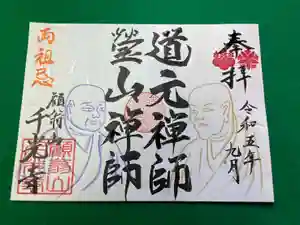 奉拝
令和五年
九月
道元禅師
瑩山禅師
両祖忌
千光寺